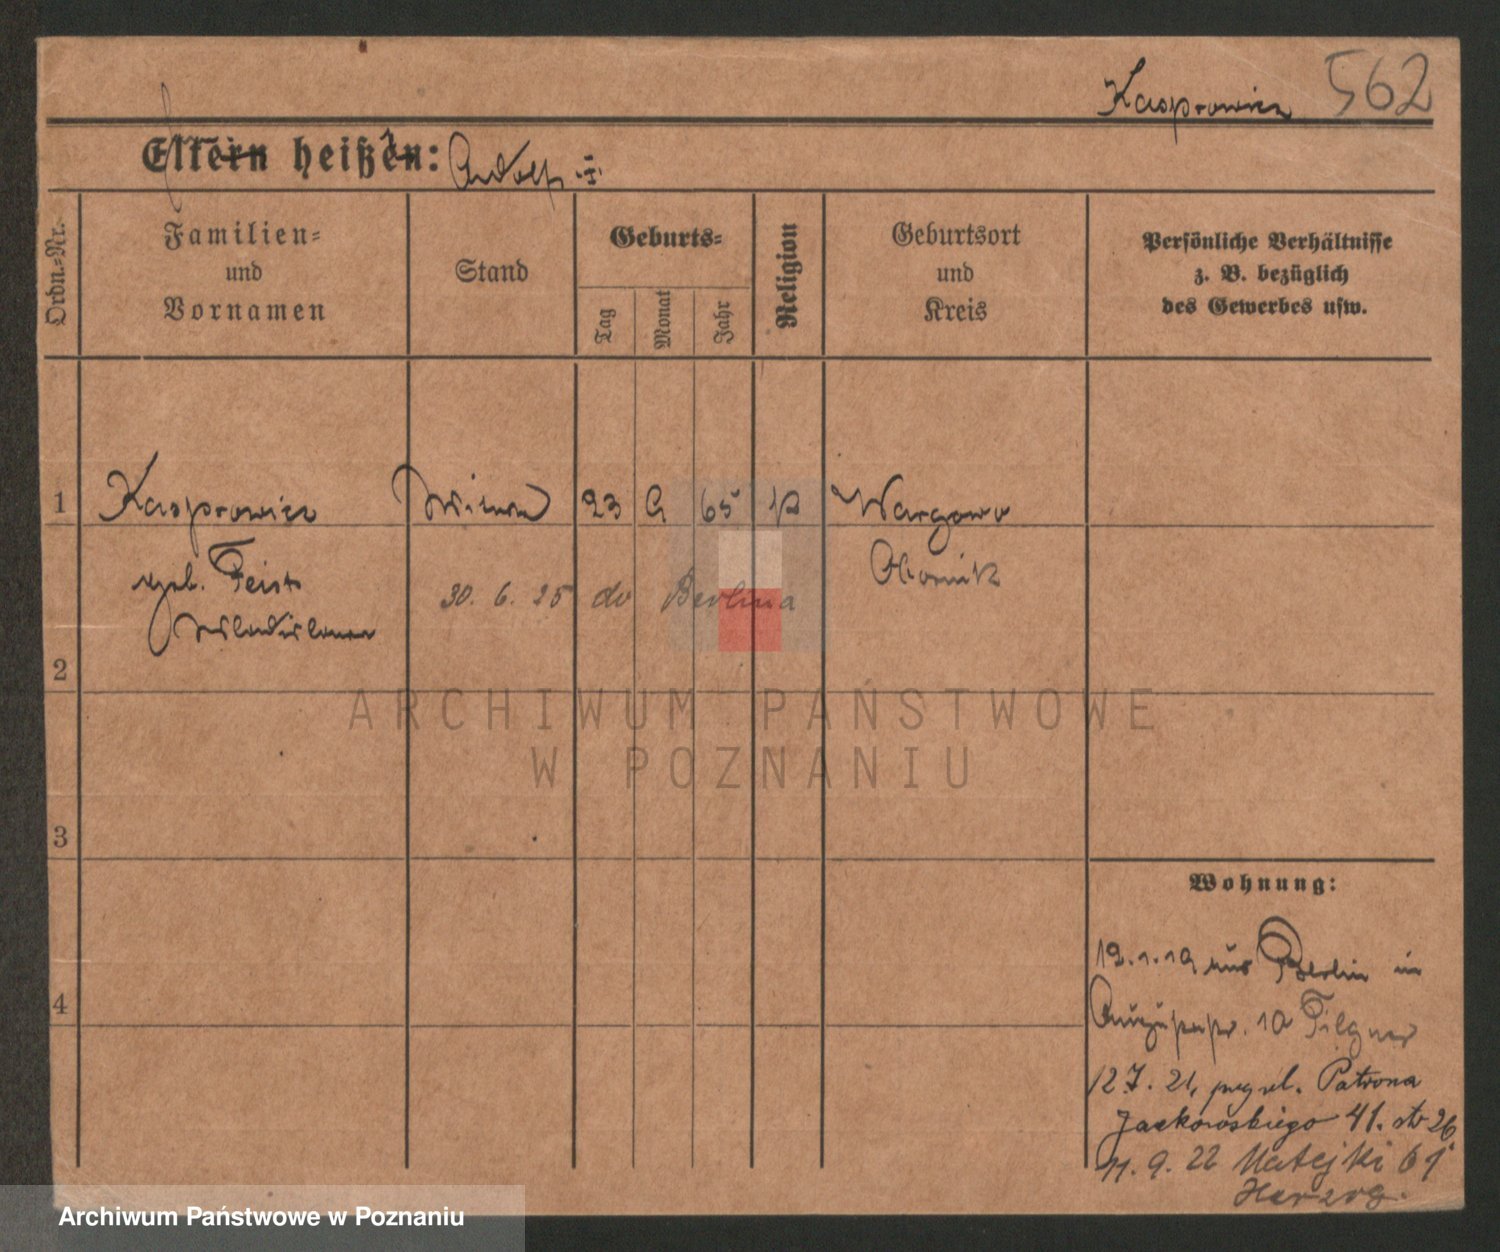 Kasprowicz 562
Eltern heißen: Adolf
Ordn.-Nr.
Familien-
und
Vornamen
Stand
Geburts-
Tag
Monat
Jahr
Religion
Geburtsort
und
Kreis
Persönliche Verhältnisse
z. B. bezüglich
des Gewerbes usw.
1 Kasprowicz Witwe 23 65 k Wargowo
geb. Feist Obornik
30. 6. 25 do Berlina
2
ARCHIWUM PAŃSTWOWE
W POZNANIU
3
Wohnung:
12.1.19 aus Berlin in
4
10 Filgner
12.7.21, Patrona
Jackowskiego 41. 26
11. 9. 22 Matejki 61
Herzog.
Archiwum Państwowe w Poznaniu